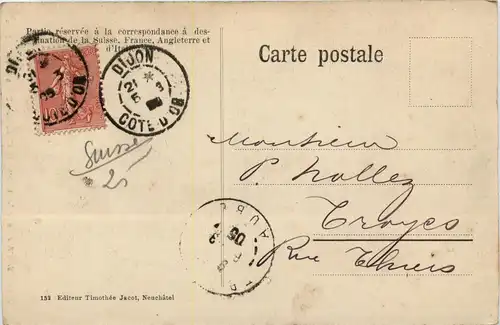 Partie réservée à la correspondance à des-
tination de la Suisse, France, Angleterre et
d'It
Carte postale
DIJON
COTE D'OR
Suisse
Monsieur
P. Nollez
Troyes
Rue Thiers
AUBE
152 Editeur Timothée Jacot, Neuchâtel